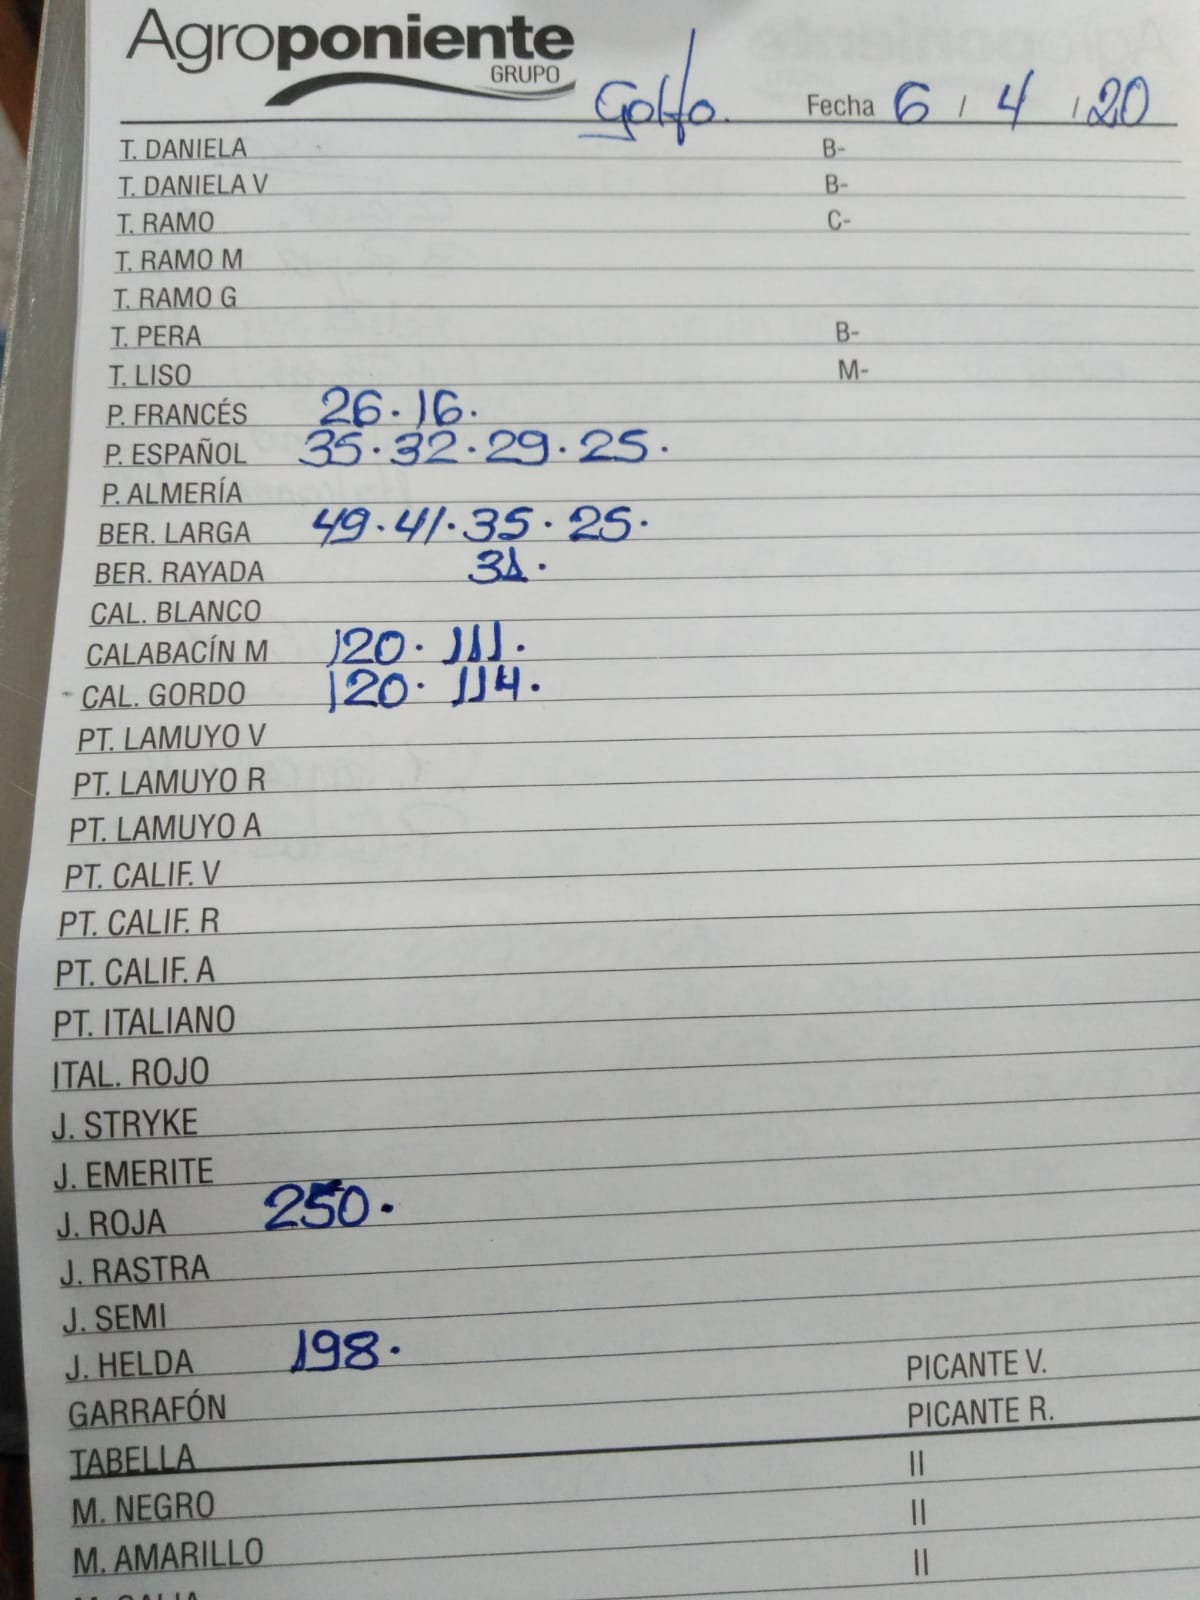 Agroponiente
GRUPO
Golfo. Fecha 6 / 4 / 20
T. DANIELA B-
T. DANIELA V B-
T. RAMO C-
T. RAMO M
T. RAMO G
T. PERA B-
T. LISO M-
P. FRANCÉS 26 · 16 ·
P. ESPAÑOL 35 · 32 · 29 · 25 ·
P. ALMERÍA
BER. LARGA 49 · 41 · 35 · 25 ·
BER. RAYADA 31 ·
CAL. BLANCO
CALABACÍN M 120 · 111 ·
CAL. GORDO 120 · 114 ·
PT. LAMUYO V
PT. LAMUYO R
PT. LAMUYO A
PT. CALIF. V
PT. CALIF. R
PT. CALIF. A
PT. ITALIANO
ITAL. ROJO
J. STRYKE
J. EMERITE
J. ROJA 250 ·
J. RASTRA
J. SEMI
J. HELDA 198 ·
PICANTE V.
GARRAFÓN PICANTE R.
TABELLA II
M. NEGRO II
M. AMARILLO II